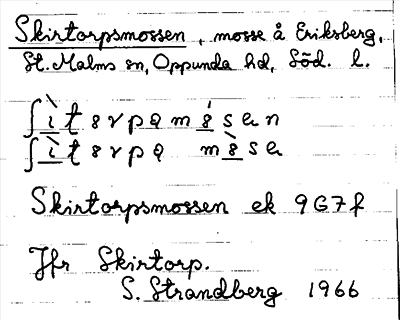 Skirtorpsmossen, mosse å Eriksberg,
St. Malms sn, Oppunda hd, Söd. l.
Skirtorpsmossen ek 9G7f
Jfr Skirtorp.
S. Strandberg 1966